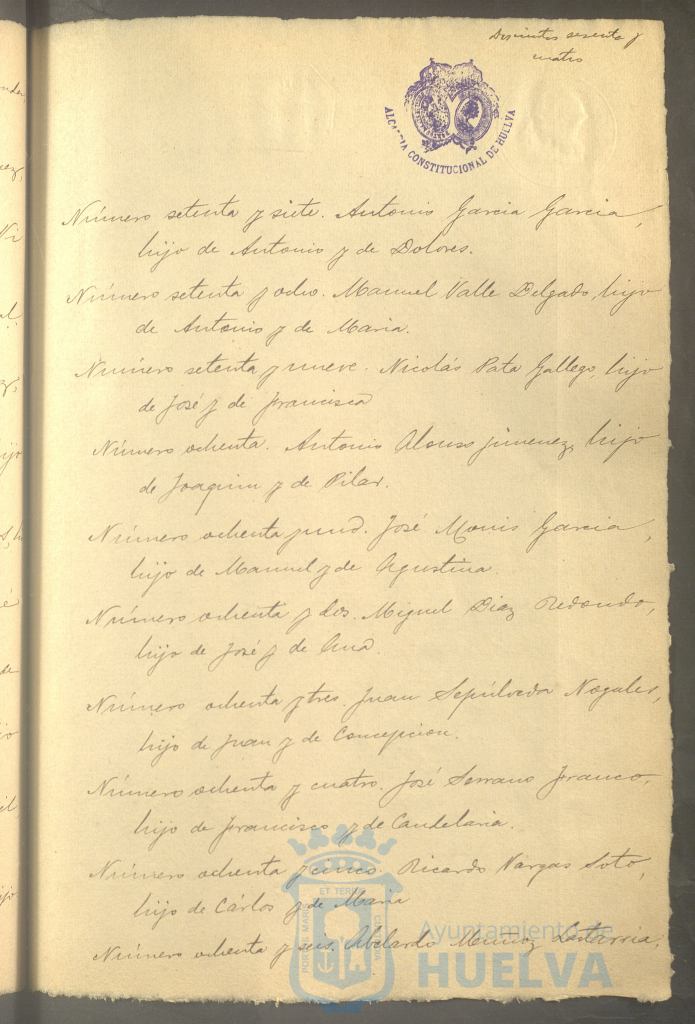 Doscientos sesenta y
cuatro
ALCALDIA CONSTITUCIONAL DE HUELVA
Número setenta y siete. Antonio Garcia Garcia,
hijo de Antonio y de Dolores.
Número setenta y ocho. Manuel Valle Delgado, hijo
de Antonio y de Maria.
Número setenta y nueve. Nicolás Pata Gallego, hijo
de José y de Francisca
Número ochenta. Antonio Alonso Jimenez, hijo
de Joaquin y de Pilar.
Número ochenta y uno. José Monis Garcia,
hijo de Manuel y de Agustina.
Número ochenta y dos. Miguel Diaz Redondo,
hijo de José y de Ana.
Número ochenta y tres. Juan Sepúlveda Nogales,
hijo de Juan y de Concepcion.
Número ochenta y cuatro. José Serrano Franco,
hijo de Francisco y de Candelaria.
Número ochenta y cinco. Ricardo Vargas Soto,
hijo de Cárlos y de Maria
Número ochenta y seis. Abelardo Muñoz
PORTUS MARIS ET TERRAE CUSTODIA
Ayuntamiento de
HUELVA